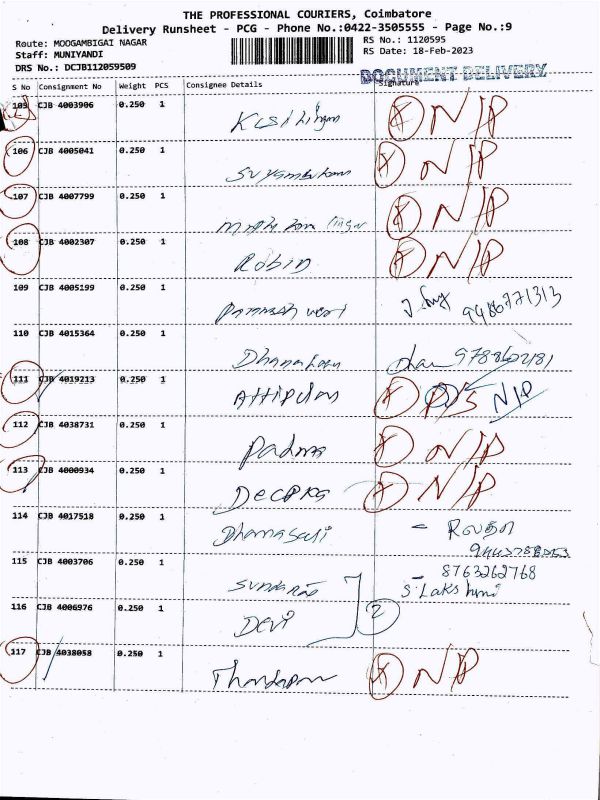 THE PROFESSIONAL COURIERS, Coimbatore
Delivery Runsheet - PCG - Phone No.:0422-3505555 - Page No.:9
Route: MOOGAMBIGAI NAGAR RS No.: 1120595
Staff: MUNIYANDI RS Date: 18-Feb-2023
DRS No.: DCJB112059509
DOCUMENT DELIVERY
S No Consignment No Weight PCS Consignee Details Signature
105 CJB 4003906 0.250 1 N/P
106 CJB 4005041 0.250 1 N/P
107 CJB 4007799 0.250 1 N/P
108 CJB 4002307 0.250 1 Robin N/P
109 CJB 4005199 0.250 1 9486771313
110 CJB 4015364 0.250 1 9788602181
111 CJB 4019213 0.250 1 N/P
112 CJB 4038731 0.250 1 Padma N/P
113 CJB 4000934 0.250 1 Deepka N/P
114 CJB 4017518 0.250 1
115 CJB 4003706 0.250 1 8763262768
S. Lakshmi
116 CJB 4006976 0.250 1 Devi 2
117 CJB 4038058 0.250 1 N/P